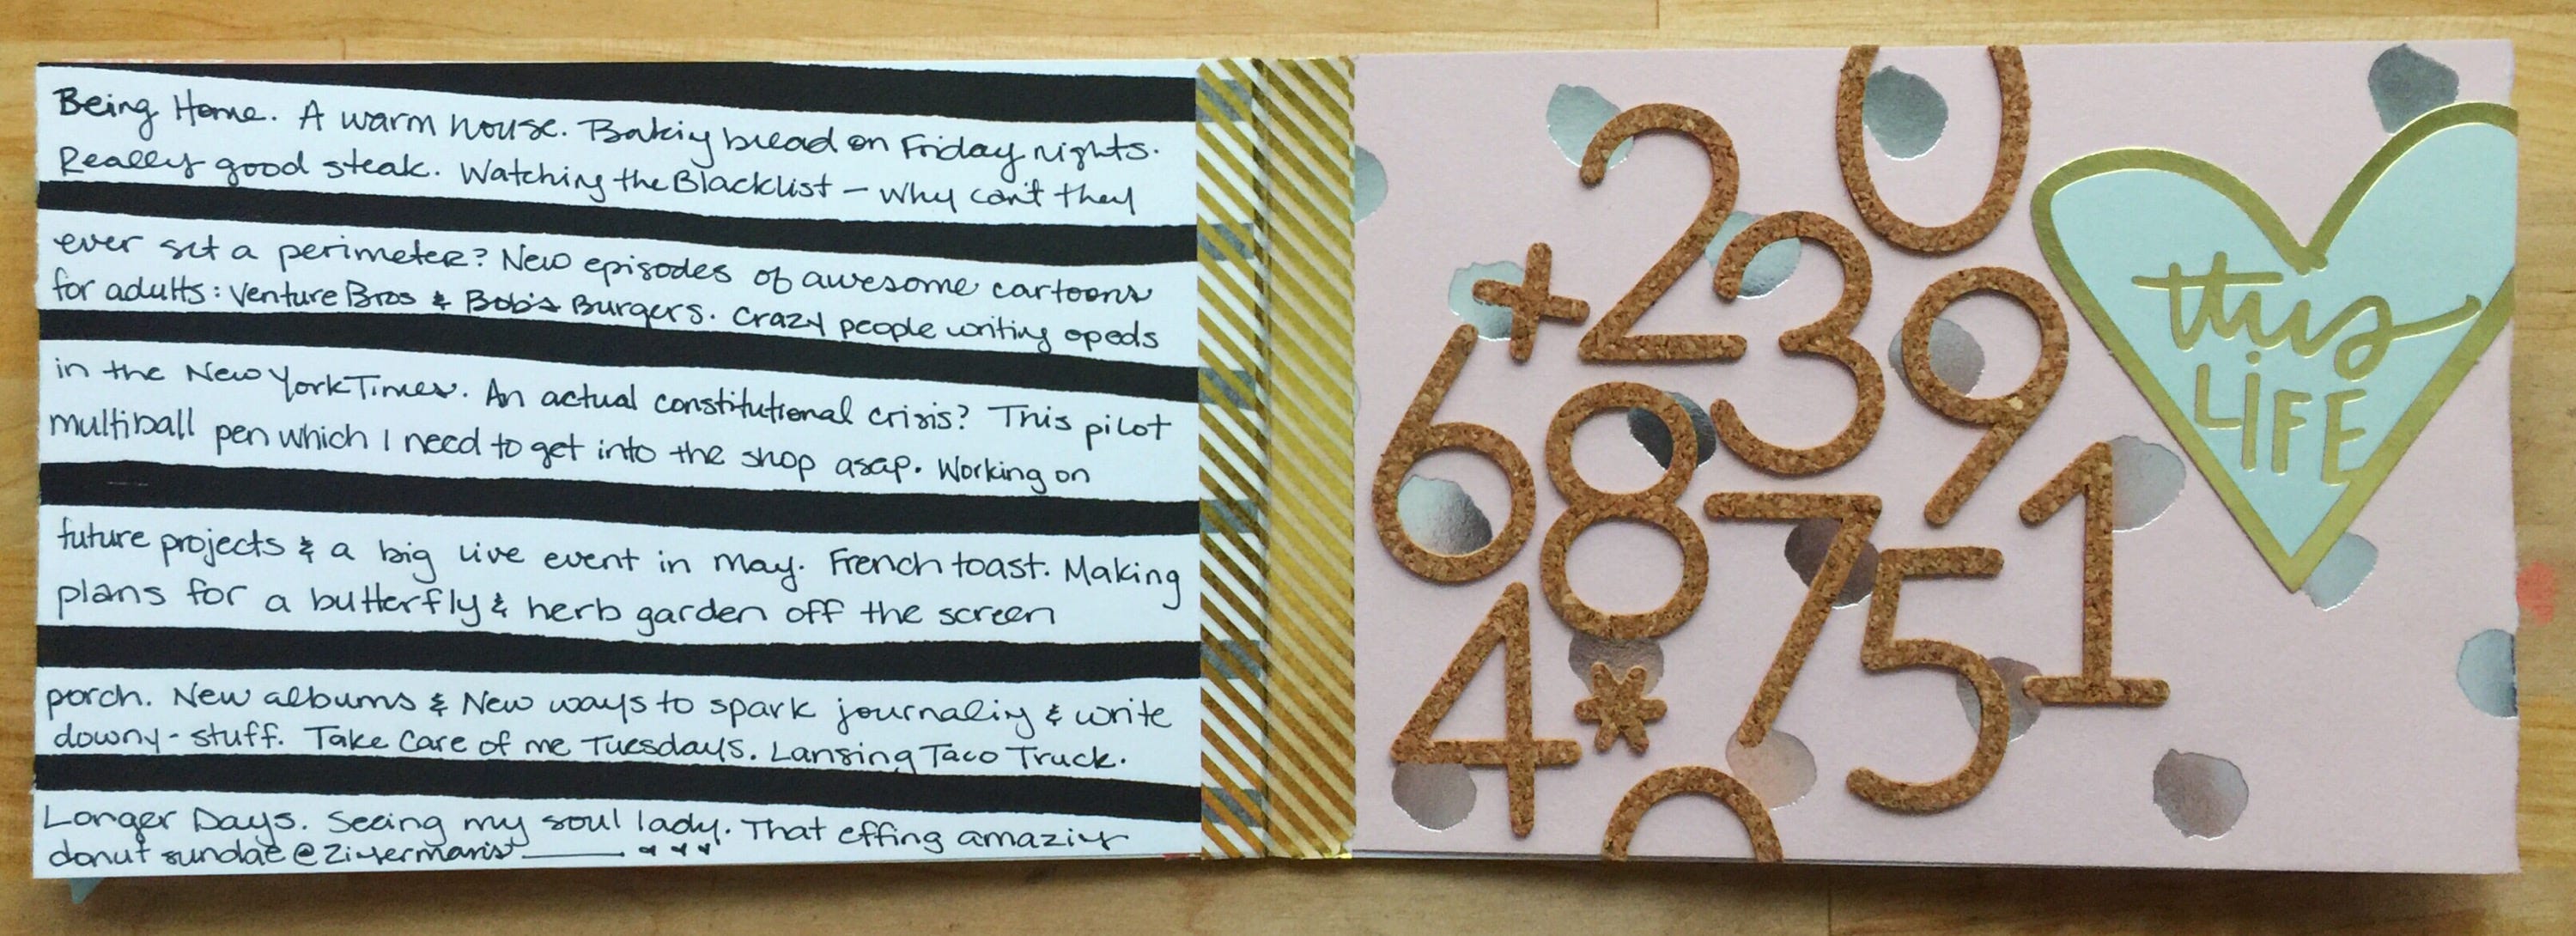 Being Home. A warm house. Baking bread on Friday nights.
Really good steak. Watching the Blacklist – why can't they
ever set a perimeter? New episodes of awesome cartoons
for adults: Venture Bros & Bob's Burgers. Crazy people writing opeds
in the New York Times. An actual constitutional crisis? This pilot
multiball pen which I need to get into the shop asap. Working on
future projects & a big live event in May. French toast. Making
plans for a butterfly & herb garden off the screen
porch. New albums & New ways to spark journaling & write
downy-stuff. Take Care of me Tuesdays. Lansing Taco Truck.
Longer Days. Seeing my soul lady. That effing amazing
donut sundae @
0
2
+ 3 9
6 8
7 5 1
4 *
this
LIFE